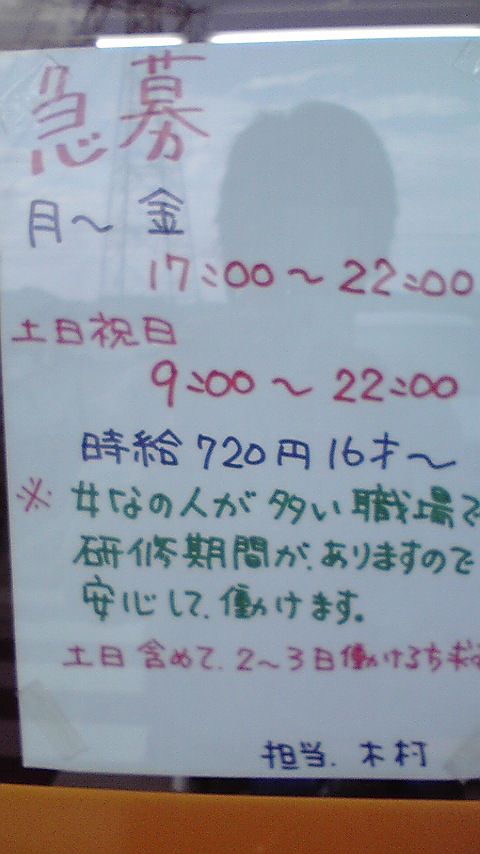 急募
月～金
17:00～22:00
土日祝日
9:00～22:00
時給720円16才～
※女なの人が多い職場で
研修期間が、ありますので
安心して、働けます。
土日含めて、2～3日働ける
担当、木村